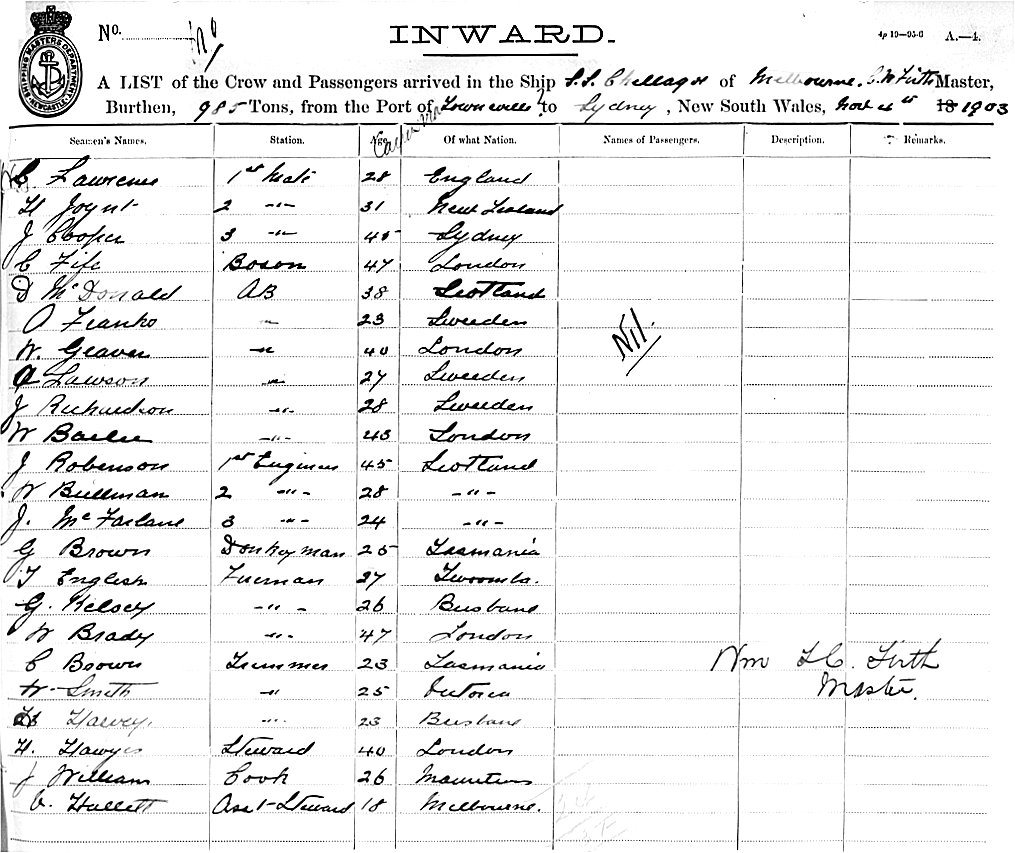 No.
INWARD.
4p 19—95-6 A.—4.
SHIPPING MASTERS DEPARTMENT NEWCASTLE
A LIST of the Crew and Passengers arrived in the Ship S.S. of Melbourne. Firth Master,
Burthen, 985 Tons, from the Port of to Sydney, New South Wales, Nov 4th 18 1903
Seamen's Names. Station. Age. Of what Nation. Names of Passengers. Description. Remarks.
C Lawrence 1st Mate 28 England
H Joynt 2 -"- 31 New Zealand
J Cooper 3 -"- 45 Sydney
C Fife Boson 47 London
D McDonald AB 38 Scotland
A Franko " 23 Sweeden
W. Geaver -"- 40 London
A Lawson -"- 27 Sweeden
J Richardson -"- 28 Sweeden
W -"- 43 London
J Robenson 1st Engineer 45 Scotland
W Bullman 2 -"- 28 -"-
J. McFarlane 3 -"- 24 -"-
G Brown Donkeyman 25 Tasmania
T English Fireman 27
G. Kelsey -"- 26 Brisbane
W Brady -"- 47 London
C Brown Trimmer 23 Tasmania
W Smith " 25 Victoria
Harvey. -"- 23 Brisbane
H. Hawyes Steward 40 London
J William Cook 26 Mauritius
C. Hallett Asst-Steward 18 Melbourne.
Nil.
Wm Firth
Master.